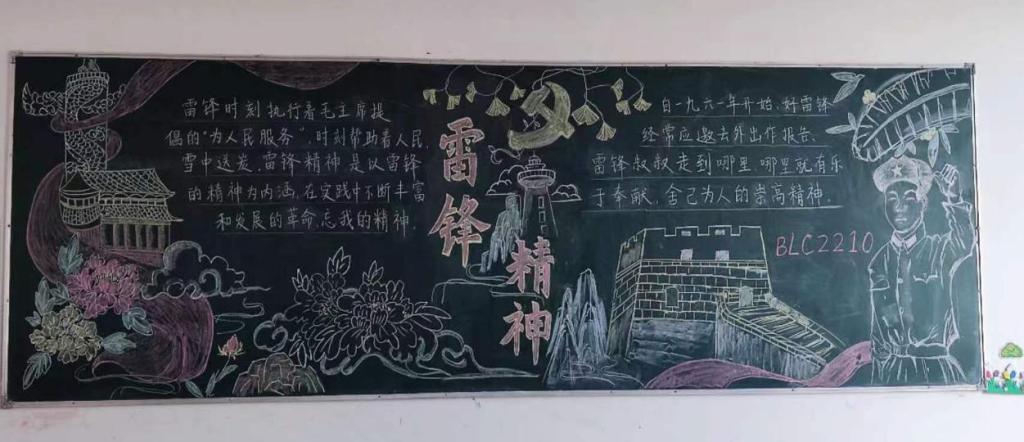 雷锋时刻执行着毛主席提
倡的"为人民服务",时刻帮助着人民,
雪中送炭,雷锋精神是以雷锋
的精神为内涵,在实践中不断丰富
和发展的革命,忘我的精神.
雷锋
精神
自一九六一年开始,好雷锋
经常应邀去外出作报告、
雷锋叔叔走到哪里,哪里就有乐
于奉献、舍己为人的崇高精神.
BLC2210